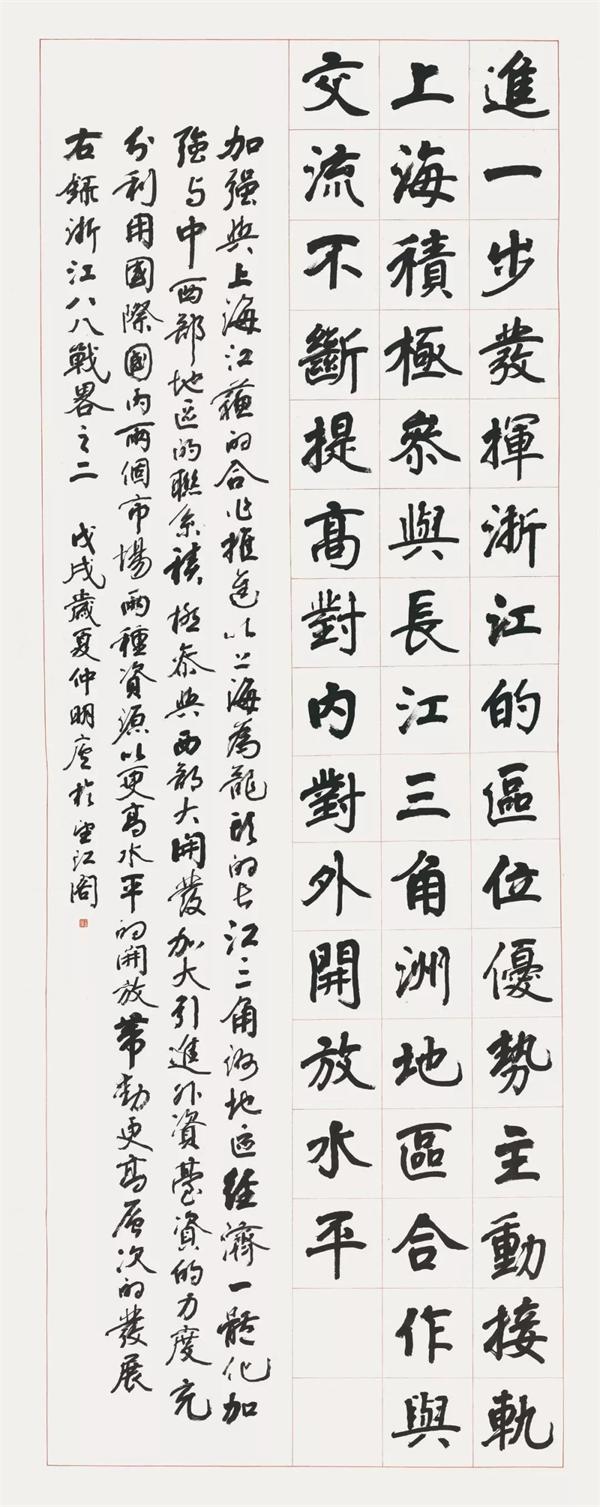 進一步發揮浙江的區位優勢主動接軌
上海積極參與長江三角洲地區合作與
交流不斷提高對內對外開放水平
加强與上海江蘇的合作推進以上海為龍頭的長江三角洲地区經濟一體化加
强与中西部地区的聯系積極參與西部大開發加大引進外資臺資的力度充
分利用國際國內兩個市場兩種資源以更高水平的開放帶動更高層次的發展
右録浙江八八戰畧之二 戊戌歲夏仲明於望江閣